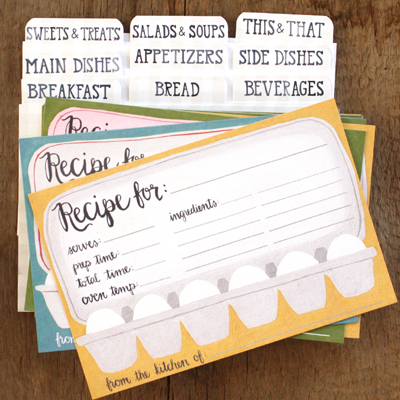 SWEETS & TREATS
SALADS & SOUPS
THIS & THAT
MAIN DISHES
APPETIZERS
SIDE DISHES
BREAKFAST
BREAD
BEVERAGES
Recipe
Recipe for
from
Recipe for:
serves:
ingredients:
prep time:
total time:
oven temp:
from the kitchen of: